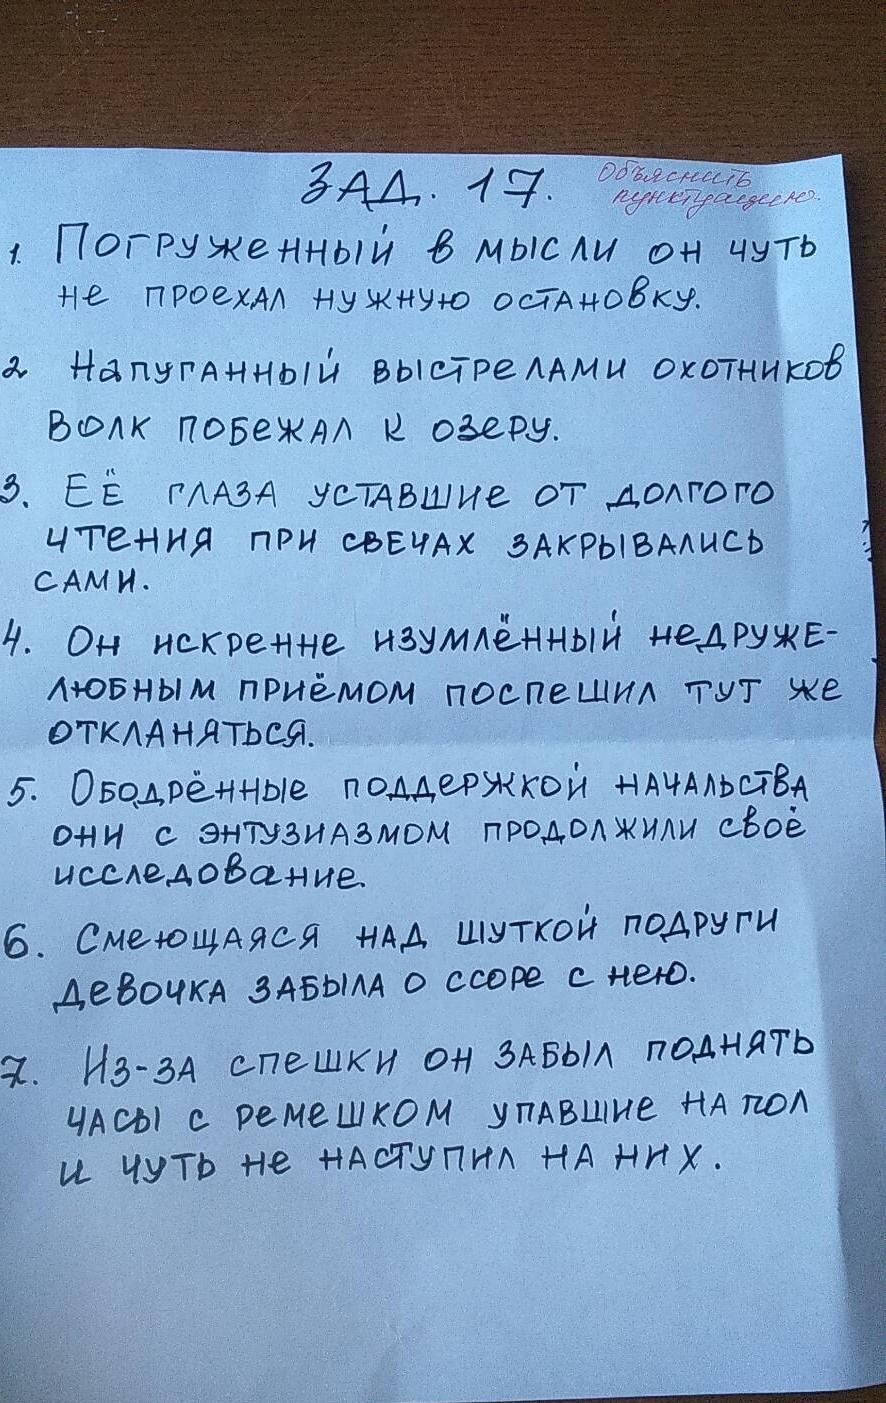 ЗАД. 17.
Объяснить
пунктуацию.
1. Погруженный в мысли он чуть
не проехал нужную остановку.
2 Напуганный выстрелами охотников
волк побежал к озеру.
3. Её глаза уставшие от долгого
чтения при свечах закрывались
сами.
4. Он искренне изумлённый недруже-
любным приёмом поспешил тут же
откланяться.
5. Ободрённые поддержкой начальства
они с энтузиазмом продолжили своё
исследование.
6. Смеющаяся над шуткой подруги
девочка забыла о ссоре с нею.
7. Из-за спешки он забыл поднять
часы с ремешком упавшие на пол
и чуть не наступил на них.